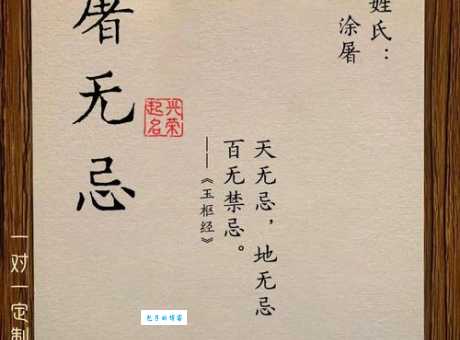 姓氏：
涂屠
天无忌，地无忌
百无禁忌。
——《玉枢经》
兴荣
起名
屠无忌
一对一定制